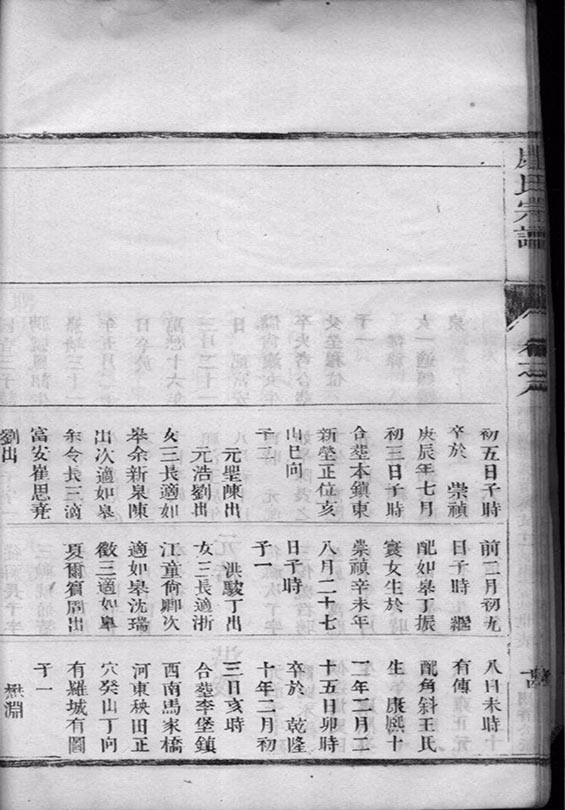 氏宗譜
初五日子時
卒於 崇禎
庚辰年七月
初三日子時
合塟本鎮東
新塋正位亥
山巳向
子二
元聖陳出
元浩劉出
女三長適如
皋余新泉陳
出次適如皋
余令長三適
富安崔思堯
劉出
前二月初九
日子時繼
配如皋丁振
寰女生於
崇禎辛未年
八月二十七
日子時
子一
洪駿丁出
女三長適浙
江童侑卿次
適如皋沈瑞
徵三適如皋
夏爾賓周出
八日未時
有傳
配角斜王氏
生 康熙十
二年三月二
十五日卯時
卒於 乾隆
十年二月初
三日亥時
合塟李堡鎮
西南馬家橋
河東秧田正
穴癸山丁向
有羅城有圖
子一
懋淵